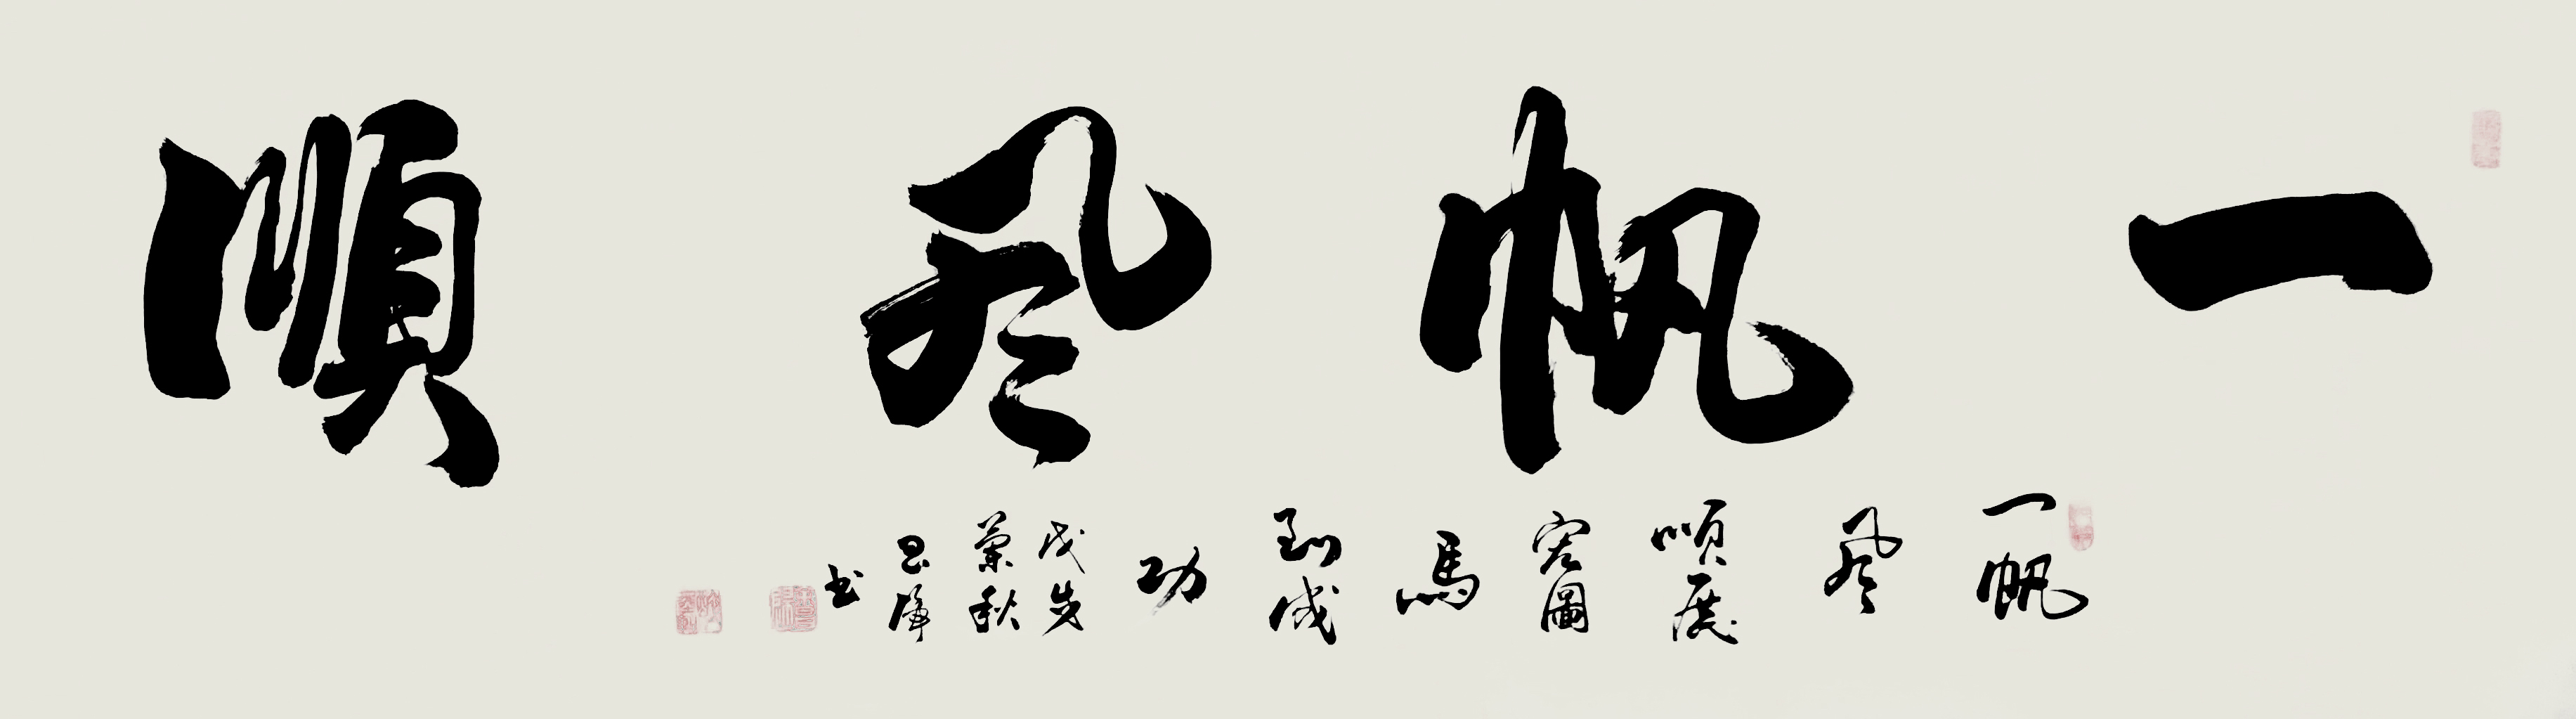 一帆風順
一帆
風
順展
宏圖
馬
到成
功
戊戌
菊秋
書